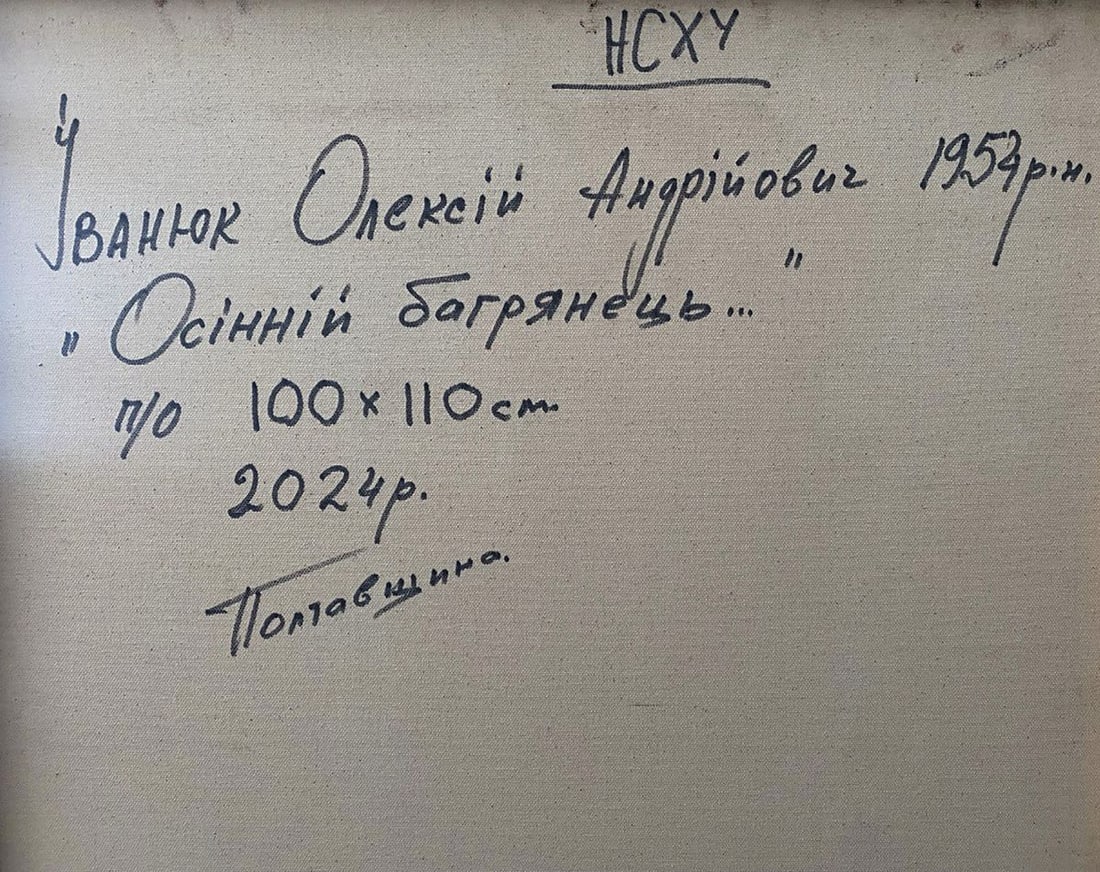 НСХУ
Іванюк Олексій Андрійович 1954р.н.
„Осінній багрянець..."
п/о 100×110см.
2024р.
Полтавщина.